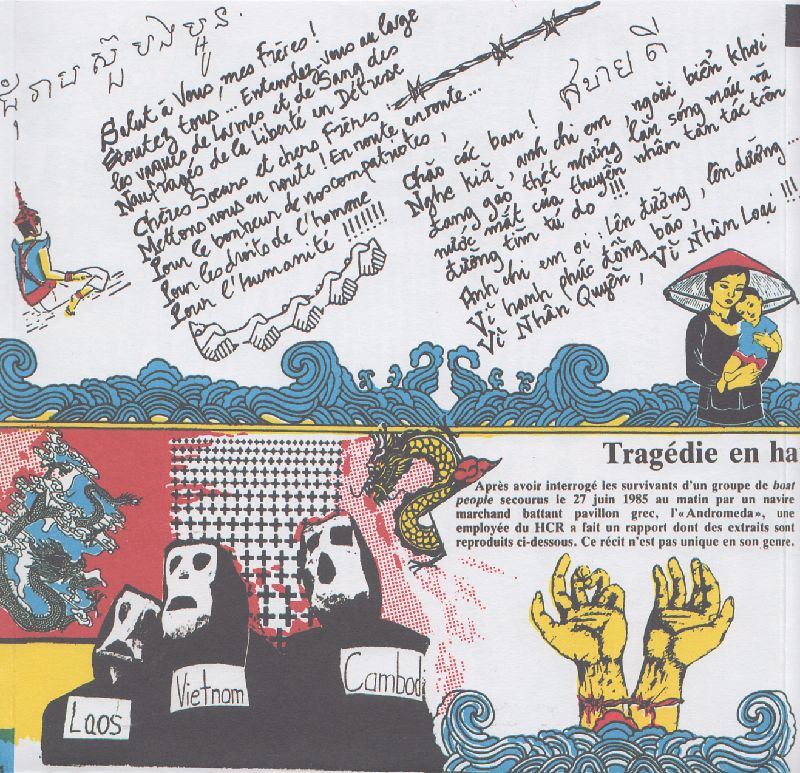 ជំរាបសួបងប្អូន
Salut à Vous, mes Frères !
Ecoutez tous... Entendez-vous au large
les vagues de larmes et de Sang des
Naufragés de la Liberté en Détresse
Chères Soeurs et chers Frères :
Mettons nous en route ! En route en route...
Pour le bonheur de nos compatriotes,
Pour les droits de l'homme
Pour l'humanité !!!!!!!
ສບາຍດີ
Chào các bạn !
Nghe kìa, anh chi em, ngoài biển khơi
đang gào thét những làn sóng máu và
nước mắt của thuyền nhân tan tác trên
đường tìm tự do !!!
Anh chi em ơi, lên đường, lên đường...
Vì hạnh phúc đồng bào,
Vì Nhân Quyền, Vì Nhân Loại !!!
Tragédie en ha
Après avoir interrogé les survivants d'un groupe de boat
people secourus le 27 juin 1985 au matin par un navire
marchand battant pavillon grec, l'«Andromeda», une
employée du HCR a fait un rapport dont des extraits sont
reproduits ci-dessous. Ce récit n'est pas unique en son genre.
Laos
Vietnam
Cambod